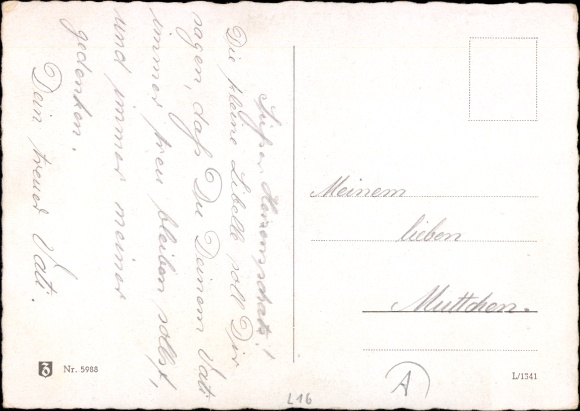 Süßer Herzensschatz!
Die kleine Libelle soll Dir
sagen, daß Du Deinem Vati
immer treu bleiben sollst,
und immer meiner
gedenken.
Dein treuer Vati.
Meinem
lieben
Muttchen.
Nr. 5988
L/1541
L16
A